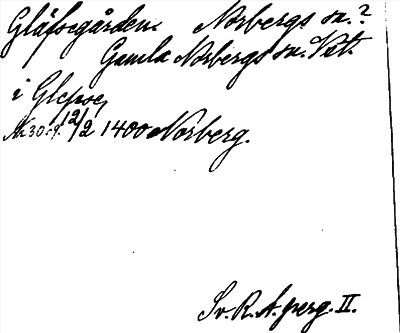 Gläfsegården. Norbergs sn.?
Gamla Norbergs sn. Vstl.
i Glefsog
Nr 30.9. 12/2 1400 Norberg.
Sv. R. A. perg. II.